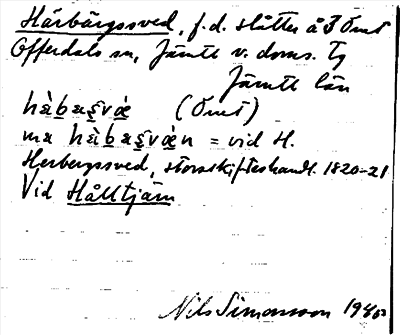 Härbärgssved, f.d. slåtter å 3 Ömt
Offerdals sn, Jämtl v. doms. Tg
Jämtl län
hὰbasvæ (Ömt)
ma hὰbasvæn = vid H.
Herbergssved, storskifteshandl. 1820-21
Vid Hålltjärn
Nils Simonsson 1940